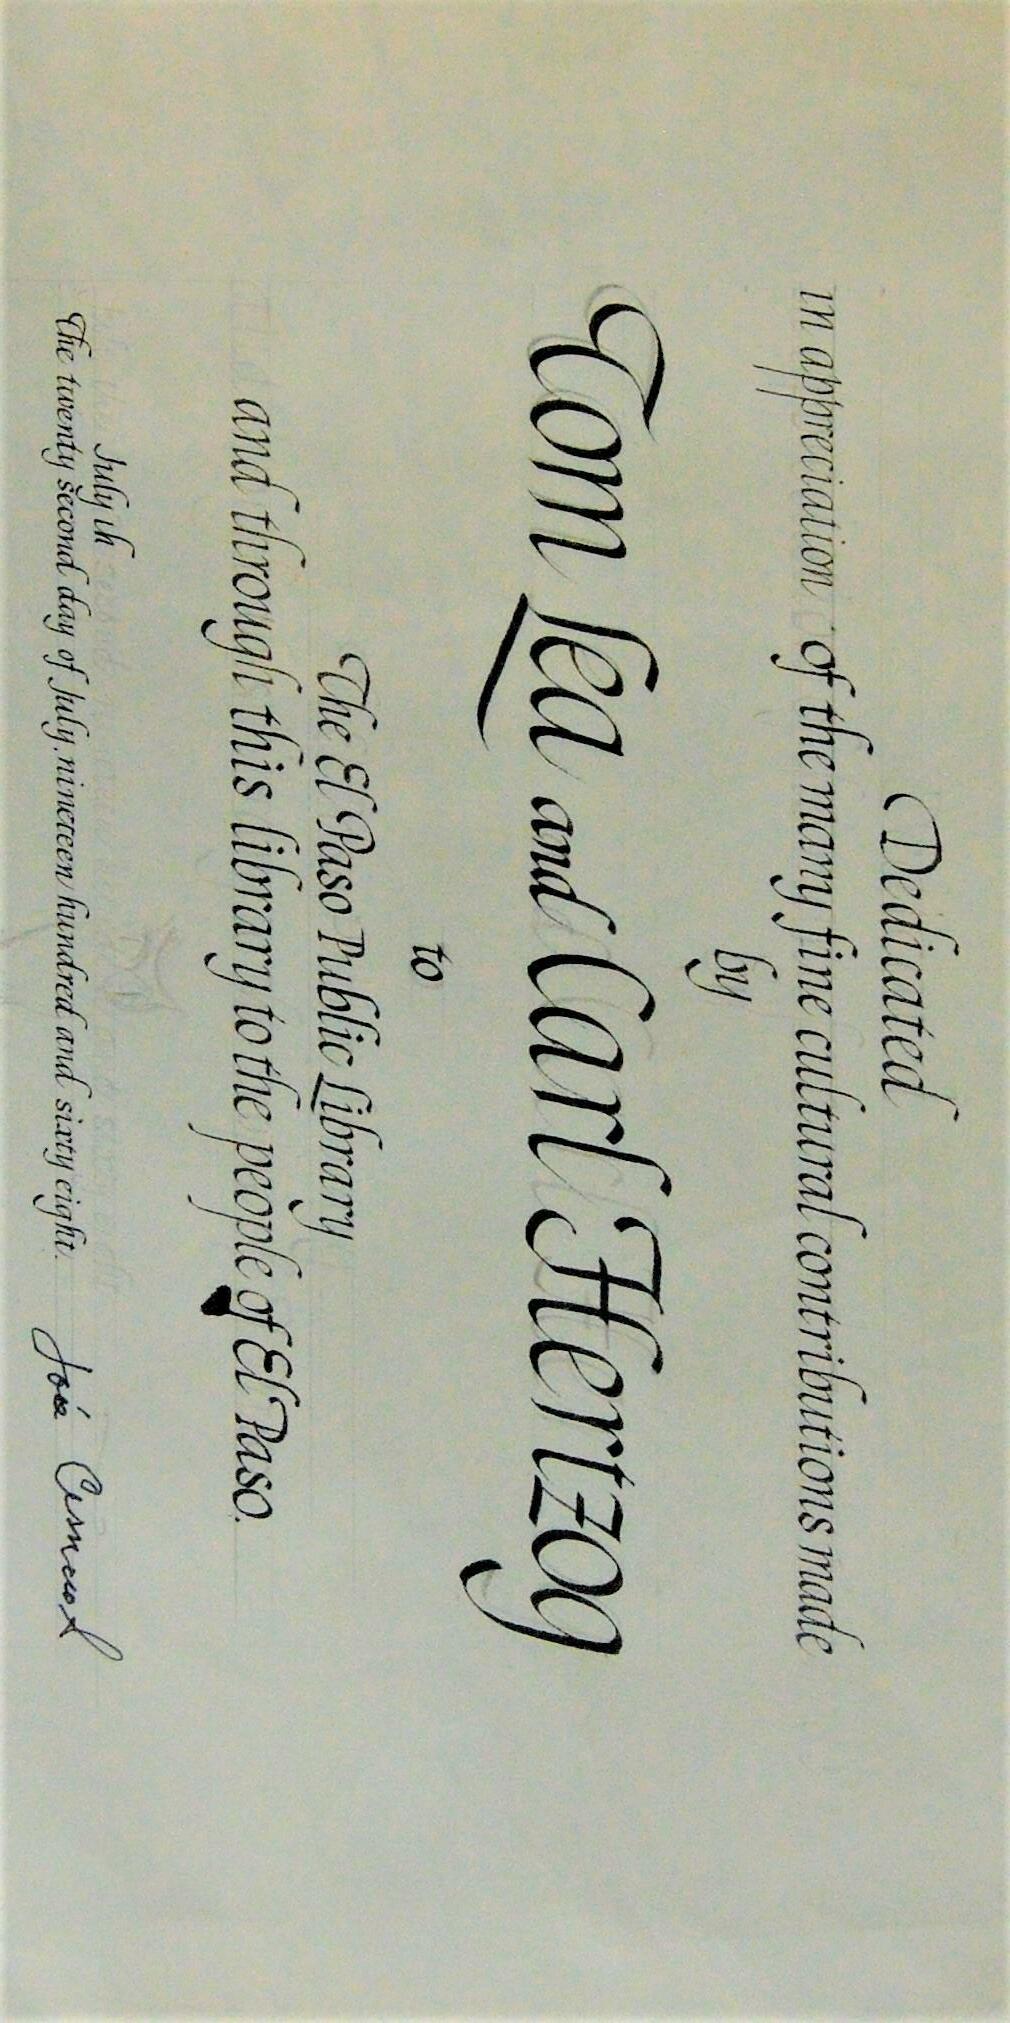 Dedicated
in appreciation of the many fine cultural contributions made
by
Tom Lea and Carl Hertzog
to
The El Paso Public Library
and through this library to the people of El Paso.
July
The twenty second day of July, nineteen hundred and sixty eight. José Cisneros